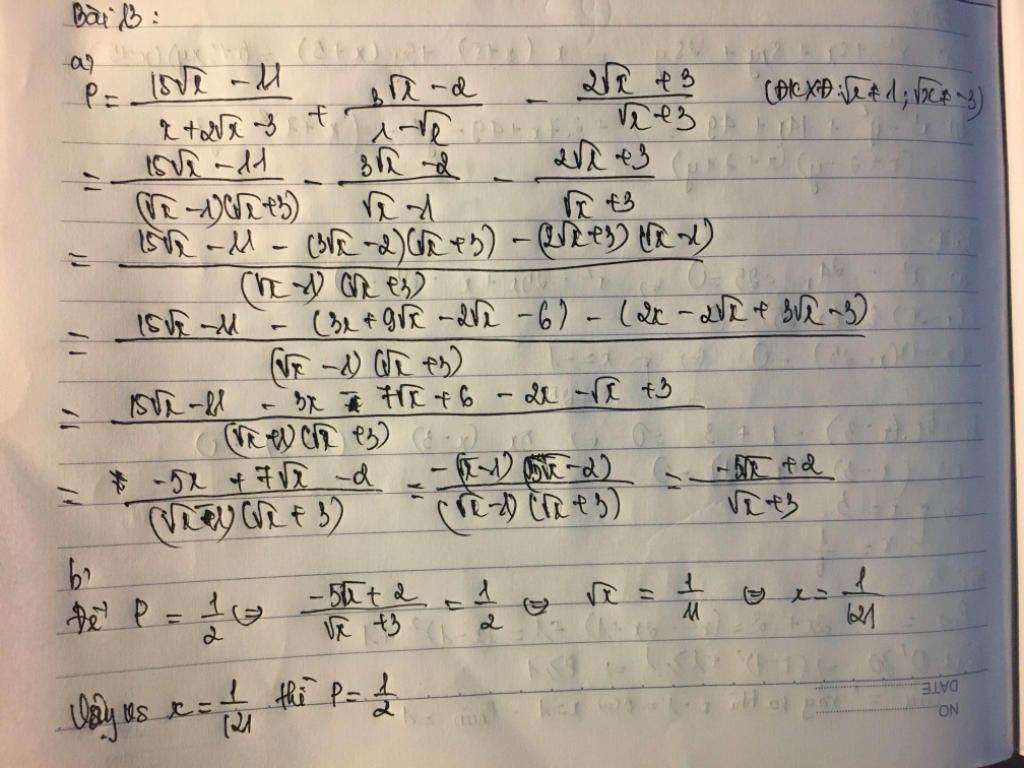 Bài 13 :
a)
P = \frac{15√x - 11}{x + 2√x - 3} + \frac{3√x - 2}{1 - √x} - \frac{2√x + 3}{√x + 3} (ĐKXĐ: √x ≠ 1 ; √x ≠ -3)
= \frac{15√x - 11}{(√x - 1)(√x + 3)} - \frac{3√x - 2}{√x - 1} - \frac{2√x + 3}{√x + 3}
= \frac{15√x - 11 - (3√x - 2)(√x + 3) - (2√x + 3)(√x - 1)}{(√x - 1)(√x + 3)}
= \frac{15√x - 11 - (3x + 9√x - 2√x - 6) - (2x - 2√x + 3√x - 3)}{(√x - 1)(√x + 3)}
= \frac{15√x - 11 - 3x - 7√x + 6 - 2x - √x + 3}{(√x - 1)(√x + 3)}
= \frac{-5x + 7√x - 2}{(√x - 1)(√x + 3)} = \frac{-(√x - 1)(5√x - 2)}{(√x - 1)(√x + 3)} = \frac{-5√x + 2}{√x + 3}
b)
Để P = \frac{1}{2} ⇔ \frac{-5√x + 2}{√x + 3} = \frac{1}{2} ⇔ √x = \frac{1}{11} ⇔ x = \frac{1}{121}
Vậy vs x = \frac{1}{121} thì P = \frac{1}{2}
DATE
NO